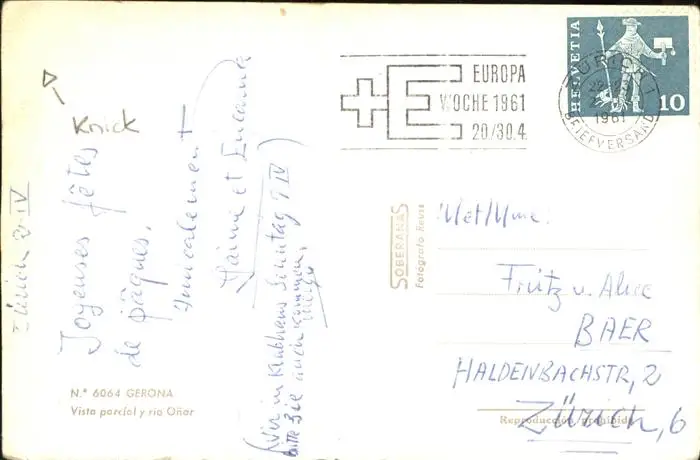 Knick
Zürich
Joyeuses fêtes
de pâques.
Amicalement
Jaime et
(Wir im Klubhaus Sonntag 9 IV
bitte Sie auch kommen.
N.º 6064 GERONA
Vista parcial y río Oñar
SOBERANAS
Fotógrafo Reuss
EUROPA
WOCHE 1961
20/30.4
HELVETIA
10
ZÜRICH 1
1961
BRIEFVERSAND
Met/Mme.
Fritz u. Alice
BAER
HALDENBACHSTR, 2
Zürich, 6
Reproducción prohibida